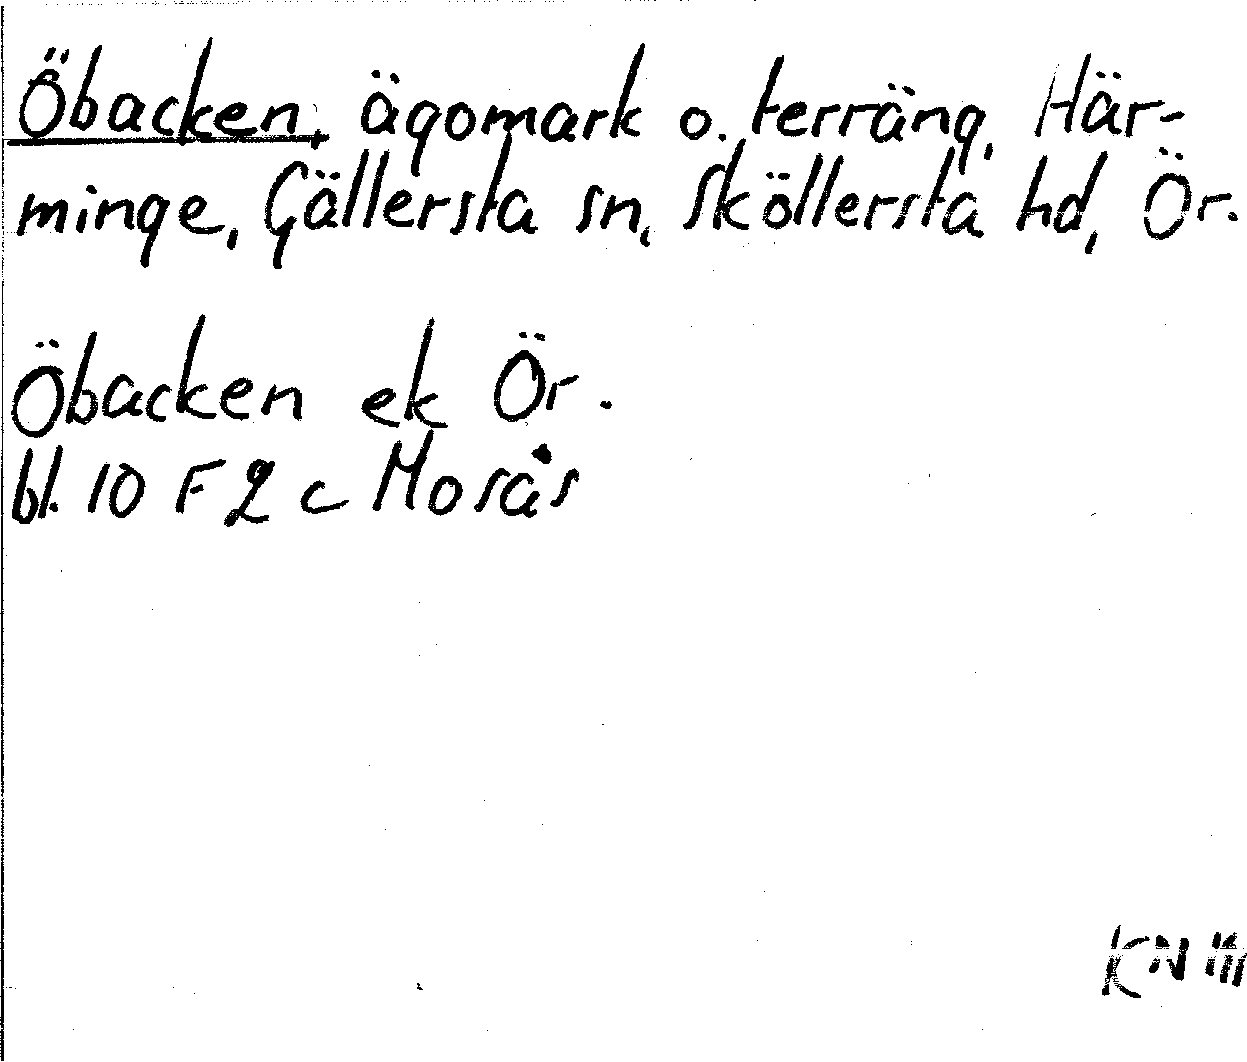 Öbacken, ägomark o. terräng, Här-
minge, Gällersta sn, Sköllersta hd, Ör.
Öbacken ek Ör.
bl. 10 F 2 c Mosås
KN III